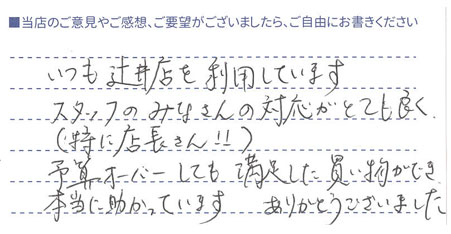 ■当店のご意見やご感想、ご要望がございましたら、ご自由にお書きください
いつも辻井店を利用しています
スタッフのみなさんの対応がとても良く
(特に店長さん!!)
予算オーバーしても、満足した買い物ができ
本当に助かっています　ありがとうございました